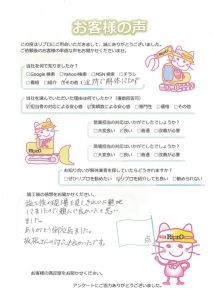 お客様の声
この度はリプロにご用命いただきまして、誠にありがとうございました。
ご依頼後のお客様の率直なお声をお聞かせくださいませ。
当社を何で知りましたか?
□Google検索 □Yahoo!検索 □MSN検索 □チラシ
□看板 □紹介 その他(近所で解体してたので)
当社を選んでいただいた理由は何でしたか?(複数回答可)
担当者の対応による安心感 実績数による安心感 □専門性 □価格 □その他
営業担当の対応はいかがでしたでしょうか?
□大変良い □良い □普通 □改善が必要
現場担当の対応はいかがでしたでしょうか?
□大変良い □良い □普通 □改善が必要
お知り合いが解体業者を探していらしたらどうしますか?
□ぜひリプロを勧めたい リプロを紹介しても良い □勧められない
施工後の感想をお聞かせください。
施工後の現場を見てきれいな整地
してましたので頼んで良かったと思い
ました。
ありがとう御座居ました。
RiprO
お客様の満足度をお聞かせください。
アンケートにご協力ありがとうございました。